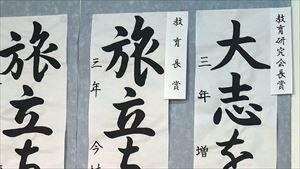 教育研究会長賞
大志を
三年 増
教育長賞
旅立ち
三年 今
旅立ち